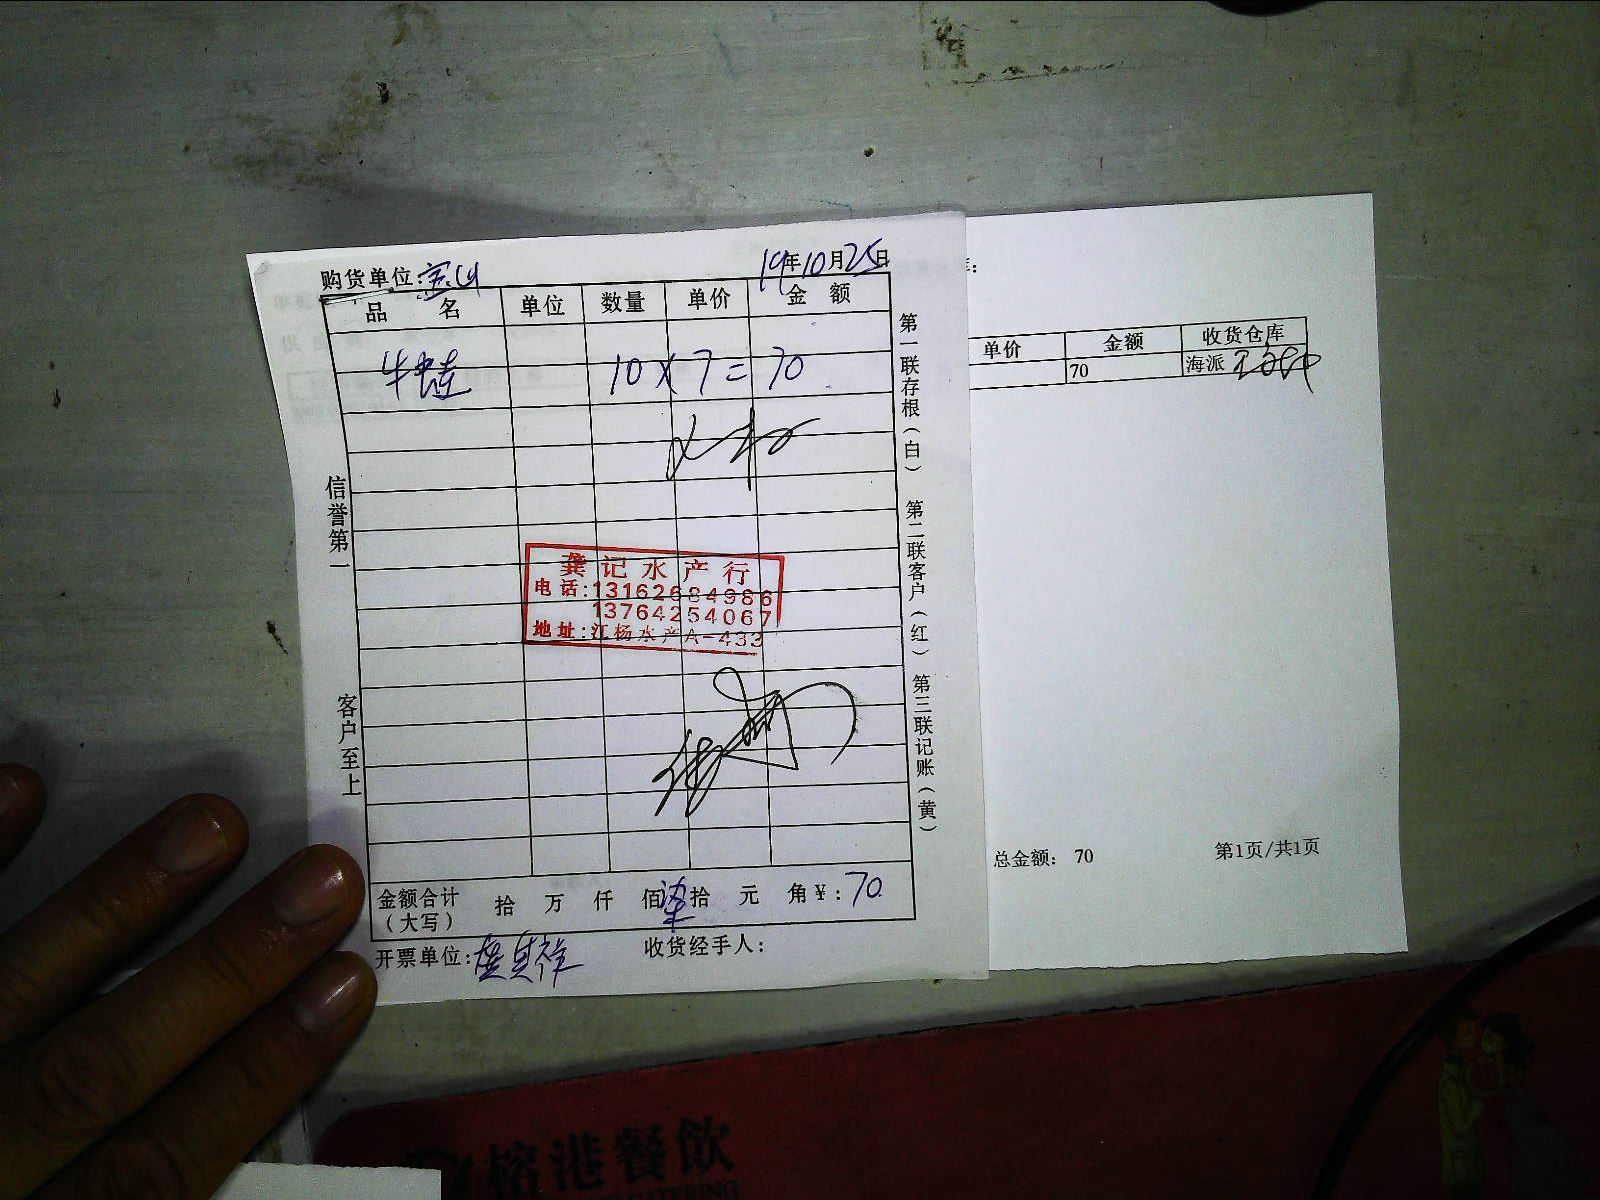 购货单位:宝山
19年10月25日
品 名 单位 数量 单价 金 额
牛蛙 10×7=70
龚记水产行
电话:13162684986
13764254067
地址:江杨水产A-433
信誉第一 客户至上
第一联存根(白) 第二联客户(红) 第三联记账(黄)
金额合计(大写) 拾 万 仟 佰 柒拾 元 角¥:70
开票单位:
收货经手人:
单价 金额 收货仓库
70 海派
总金额: 70 第1页/共1页
榕港餐飲